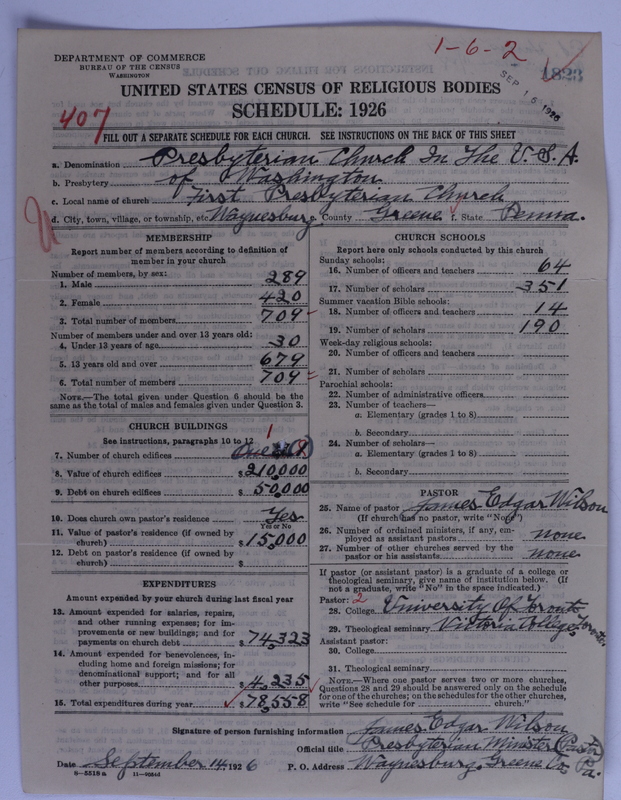 1-6-2
DEPARTMENT OF COMMERCE
BUREAU OF THE CENSUS
WASHINGTON
SEP 15 1926
1823
UNITED STATES CENSUS OF RELIGIOUS BODIES
SCHEDULE: 1926
407
FILL OUT A SEPARATE SCHEDULE FOR EACH CHURCH. SEE INSTRUCTIONS ON THE BACK OF THIS SHEET
a. Denomination Presbyterian Church In The U.S.A.
b. Presbytery of Washington
c. Local name of church First Presbyterian Church
d. City, town, village, or township, etc. Waynesburg County Greene f. State Penna.
MEMBERSHIP
Report number of members according to definition of
member in your church
Number of members, by sex:
1. Male 289
2. Female 420
3. Total number of members 709
Number of members under and over 13 years old:
4. Under 13 years of age 30
5. 13 years old and over 679
6. Total number of members 709
NOTE.—The total given under Question 6 should be
the same as the total of males and females given under Question 3.
CHURCH BUILDINGS
See instructions, paragraphs 10 to 12
7. Number of church edifices One 1
8. Value of church edifices $210,000
9. Debt on church edifices $50,000
10. Does church own pastor's residence Yes
Yes or No
11. Value of pastor's residence (if owned by
church) $15,000
12. Debt on pastor's residence (if owned by
church) $
EXPENDITURES
Amount expended by your church during last fiscal year
13. Amount expended for salaries, repairs,
and other running expenses; for im-
provements or new buildings; and for
payments on church debt $74,323
14. Amount expended for benevolences, in-
cluding home and foreign missions; for
denominational support; and for all
other purposes $4,235
15. Total expenditures during year $78,558
CHURCH SCHOOLS
Report here only schools conducted by this church
Sunday schools:
16. Number of officers and teachers 64
17. Number of scholars 351
Summer vacation Bible schools:
18. Number of officers and teachers 14
19. Number of scholars 190
Week-day religious schools:
20. Number of officers and teachers
21. Number of scholars
Parochial schools:
22. Number of administrative officers
23. Number of teachers—
a. Elementary (grades 1 to 8)
b. Secondary
24. Number of scholars—
a. Elementary (grades 1 to 8)
b. Secondary
PASTOR
25. Name of pastor James Edgar Wilson
(If church has no pastor, write "No")
26. Number of ordained ministers, if any, em-
ployed as assistant pastors none
27. Number of other churches served by the
pastor or his assistants none
If pastor (or assistant pastor) is a graduate of a college or
theological seminary, give name of institution below. (If
not a graduate, write "No" in the space indicated.)
Pastor: 2
28. College University Of Toronto
29. Theological seminary Victoria College, Toronto.
Assistant pastor:
30. College
31. Theological seminary
NOTE.—Where one pastor serves two or more churches,
Questions 28 and 29 should be answered only on the schedule
for one of the churches; on the schedules for the other churches,
write "See schedule for church."
Signature of person furnishing information James Edgar Wilson
Official title Presbyterian Minister (Pastor)
Date September 14, 1926 P. O. Address Waynesburg, Greene Co. Pa.
8—5518 a 11—9584d